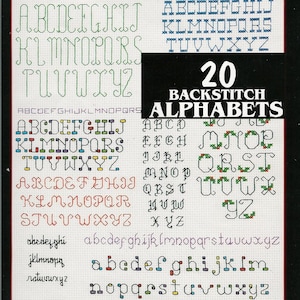 ABCDEFGHIJ
KLMNOPQRS
TUVWXYZ
ABCDEFGHI
JKLMNOPQR
STUVWXYZ
20
BACKSTITCH
ALPHABETS
ABCDEFGHIJKLMNOPQRS
ABCDEFGHIJ
KLMNOPQRS
TUVWXYZ
ABCD
EFG
HIJK
LMN
OPQ
RST
UVW
XYZ
NOP
QRST
UVX
YZ
ABCDEFGHIJ
KLMNOPQRS
TUVWXYZ
abcdefghi
jklmnopq
rstuvwxyz
abcdefghijklmnopqrstuvwxyz
abcdefghijklm
nopqrstuvwxyz